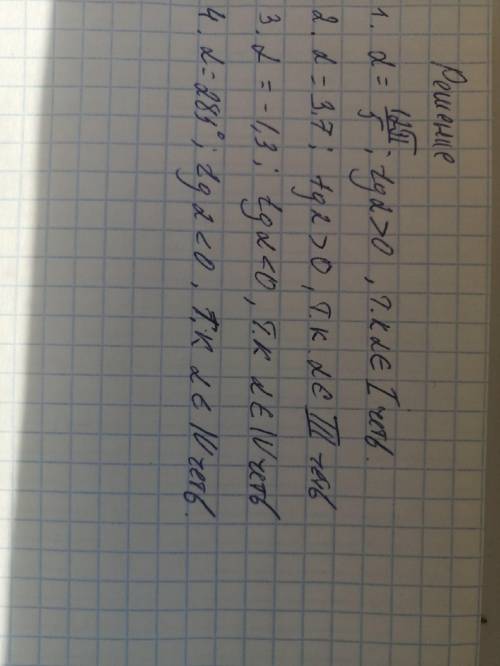 Решение
1. α = 12π/5; tg α > 0, т.к α ∈ I четв.
2. α = 3,7; tg α > 0, т.к. α ∈ III четв
3. α = -1,3; tg α < 0, т.к α ∈ IV четв
4. α = 281°; tg α < 0, т.к α ∈ IV четв.